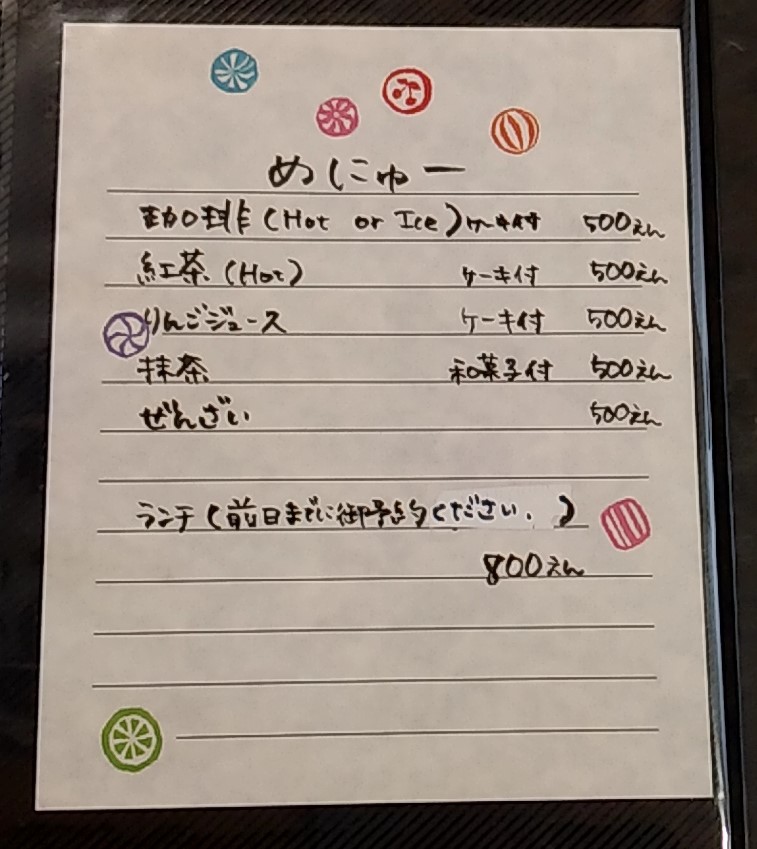 めにゅー
珈琲(Hot or Ice)ケーキ付 500えん
紅茶(Hot) ケーキ付 500えん
りんごジュース ケーキ付 500えん
抹茶 和菓子付 500えん
ぜんざい 500えん
ランチ(前日までに御予約ください.)
800えん